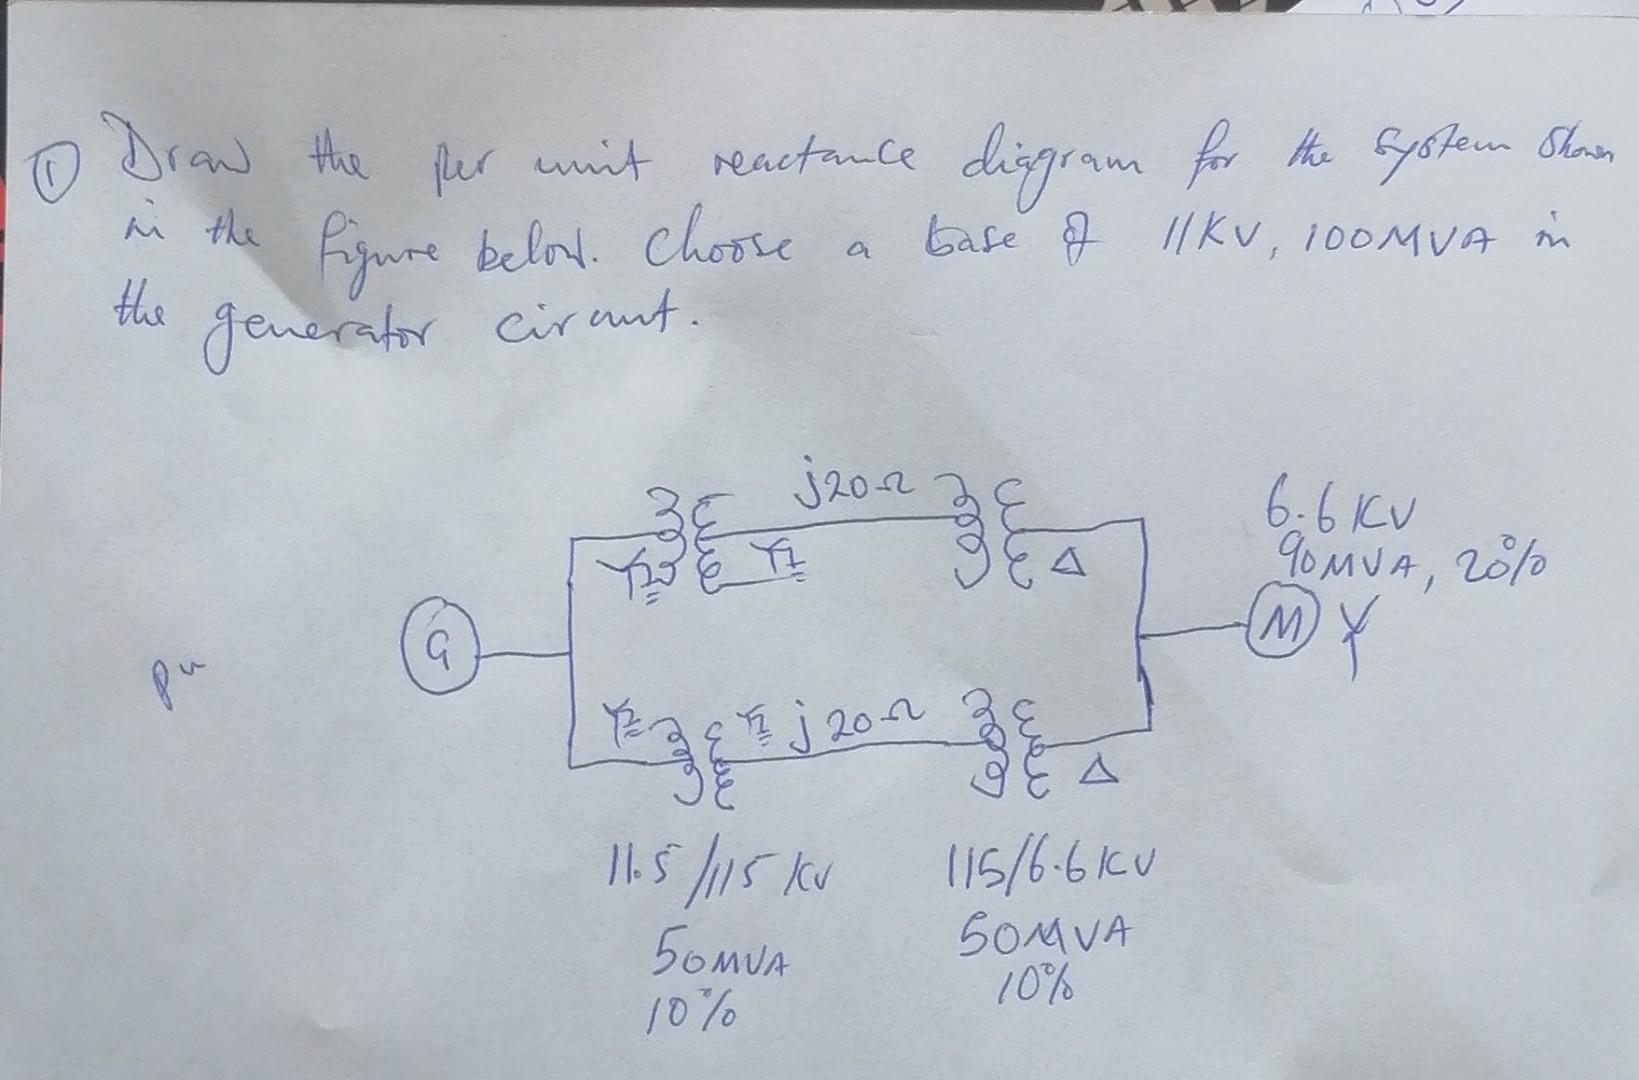 ① Draw the per unit reactance diagram for the system shown
in the figure below. Choose a base of 11KV, 100MVA in
the generator circuit.
j20Ω
6.6 KV
90MVA, 20%
Y
Y
Δ
G
M
Y
pu
Y
Y
j20Ω
Δ
11.5/115 KV
115/6.6 KV
50MVA
50MVA
10%
10%